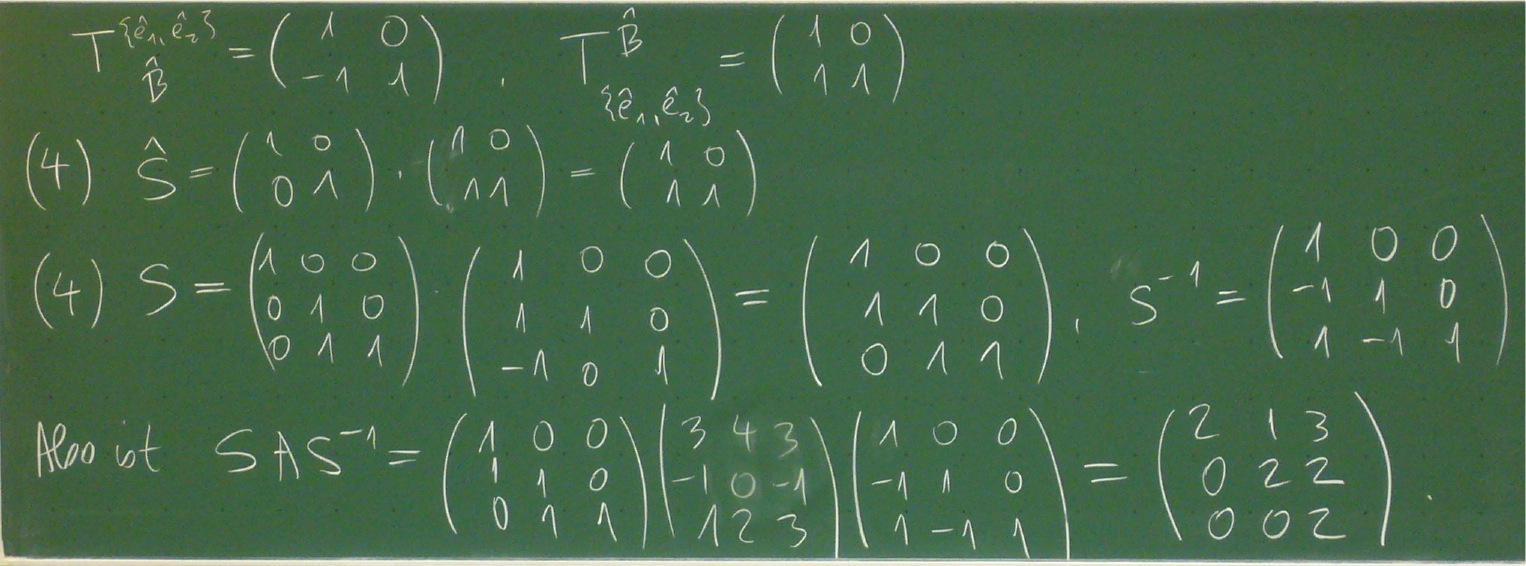 T^{ê₁,ê₂}_B̂ = (1 0; -1 1), T^B̂_{ê₁,ê₂} = (1 0; 1 1)
(4) Ŝ = (1 0; 0 1) · (1 0; 1 1) = (1 0; 1 1)
(4) S = (1 0 0; 0 1 0; 0 1 1) · (1 0 0; 1 1 0; -1 0 1) = (1 0 0; 1 1 0; 0 1 1), S⁻¹ = (1 0 0; -1 1 0; 1 -1 1)
Also ist SAS⁻¹ = (1 0 0; 1 1 0; 0 1 1) (3 4 3; -1 0 -1; 1 2 3) (1 0 0; -1 1 0; 1 -1 1) = (2 1 3; 0 2 2; 0 0 2).